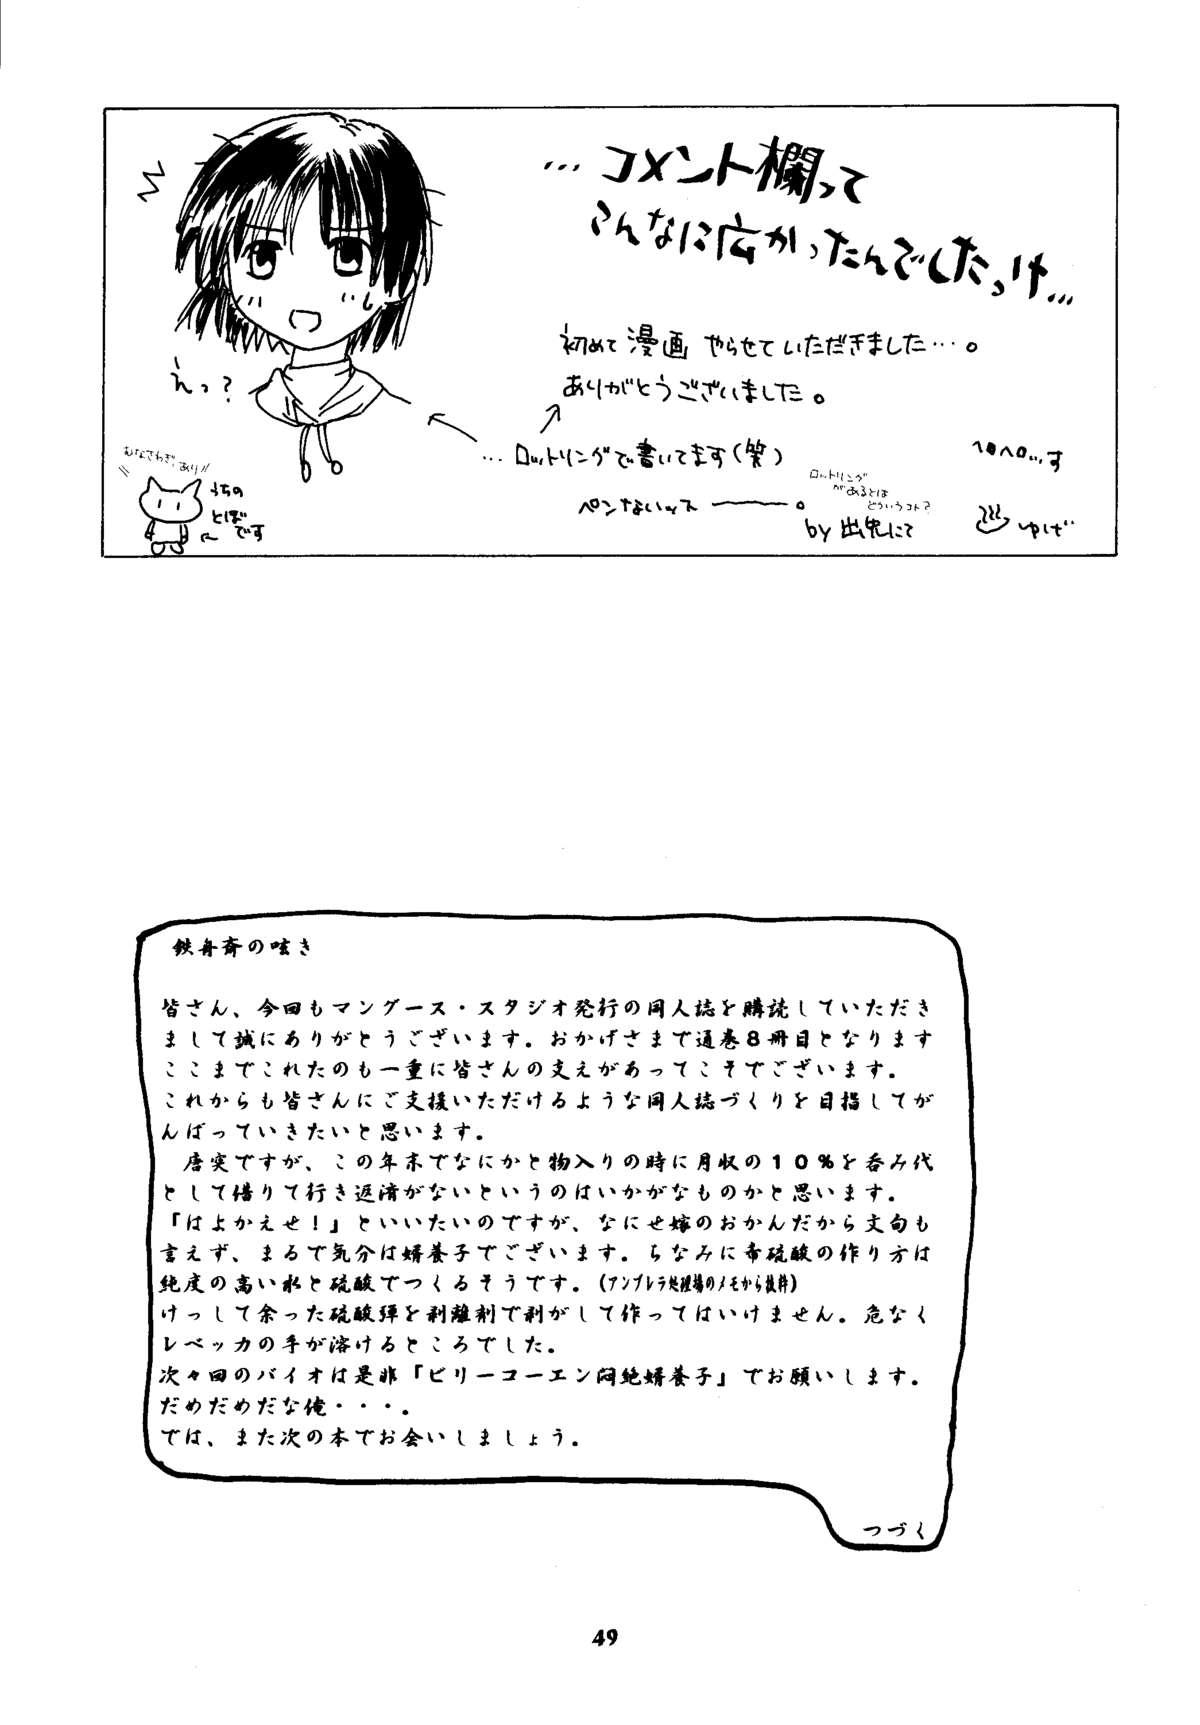 …コメント欄って
こんなに広かったんでしたっけ…
初めて漫画やらせていただきました…。
ありがとうございました。
えっ?
…ロットリングで書いてます(笑)
ペンないッス――。
ロットリング
があるとは
どういうコト?
by 出鬼にて
ヘロヘロ…す
ゆげ
むなさわぎ、あり
うちの
とぼ
です
鉄舟斎の呟き
皆さん、今回もマングース・スタジオ発行の同人誌を購読していただき
まして誠にありがとうございます。おかげさまで通巻8冊目となります
ここまでこれたのも一重に皆さんの支えがあってこそでございます。
これからも皆さんにご支援いただけるような同人誌づくりを目指してが
んばっていきたいと思います。
唐突ですが、この年末でなにかと物入りの時に月収の10%を呑み代
として借りて行き返済がないというのはいかがなものかと思います。
「はよかえせ!」といいたいのですが、なにせ嫁のおかんだから文句も
言えず、まるで気分は婿養子でございます。ちなみに希硫酸の作り方は
純度の高い水と硫酸でつくるそうです。(アンブレラ処理場のメモから抜粋)
けっして余った硫酸弾を剥離剤で剥がして作ってはいけません。危なく
レベッカの手が溶けるところでした。
次々回のバイオは是非「ビリーコーエン悶絶婿養子」でお願いします。
だめだめだな俺・・・。
では、また次の本でお会いしましょう。
つづく
49